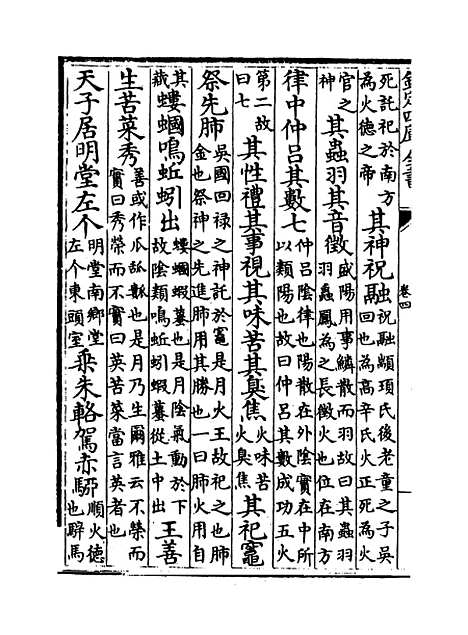 欽定四庫全書 卷四
死託祀於南方
為火德之帝
其神祝融
祝融顓頊氏後老童之子吳
回也為高辛氏火正死為火
官之
神
其蟲羽其音徵
盛陽用事鱗散而羽故曰其蟲羽
羽蟲鳳為之長徵火也位在南方
律中仲呂其數七
仲呂陰律也陽散在外陰實在中所
以類陽也故曰仲呂其數成功五火
第二故
曰七
其性禮其事視其味苦其臭焦
火味苦
火臭焦
其祀竈
祭先肺
吳國回祿之神託於竈是月火王故祀之也肺
金也祭神之先進肺用其勝也一曰肺火用自
其
藏
螻蟈鳴蚯蚓出
螻蟈蝦蟇也是月陰氣動於下
故陰類鳴蚯蚓蝦蟇從土中出
王善
生苦菜秀
善或作瓜也是月乃生爾雅云不榮而
實曰秀榮而不實曰英苦菜當言英者也
天子居明堂左个
明堂南鄉堂
左个東頭室
乘朱輅駕赤駵
順火德
也騂馬